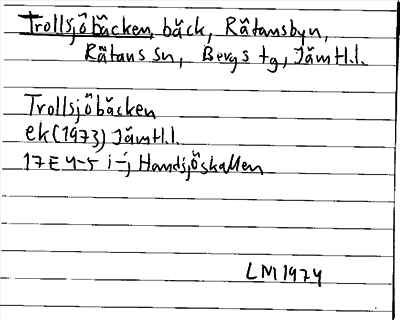 Trollsjöbäcken, bäck, Rätansbyn,
Rätans sn, Bergs tg, Jämtl.l.
Trollsjöbäcken
ek(1973) Jämtl.l.
17E 4-5 i-j Handsjöskallen
LM 1974